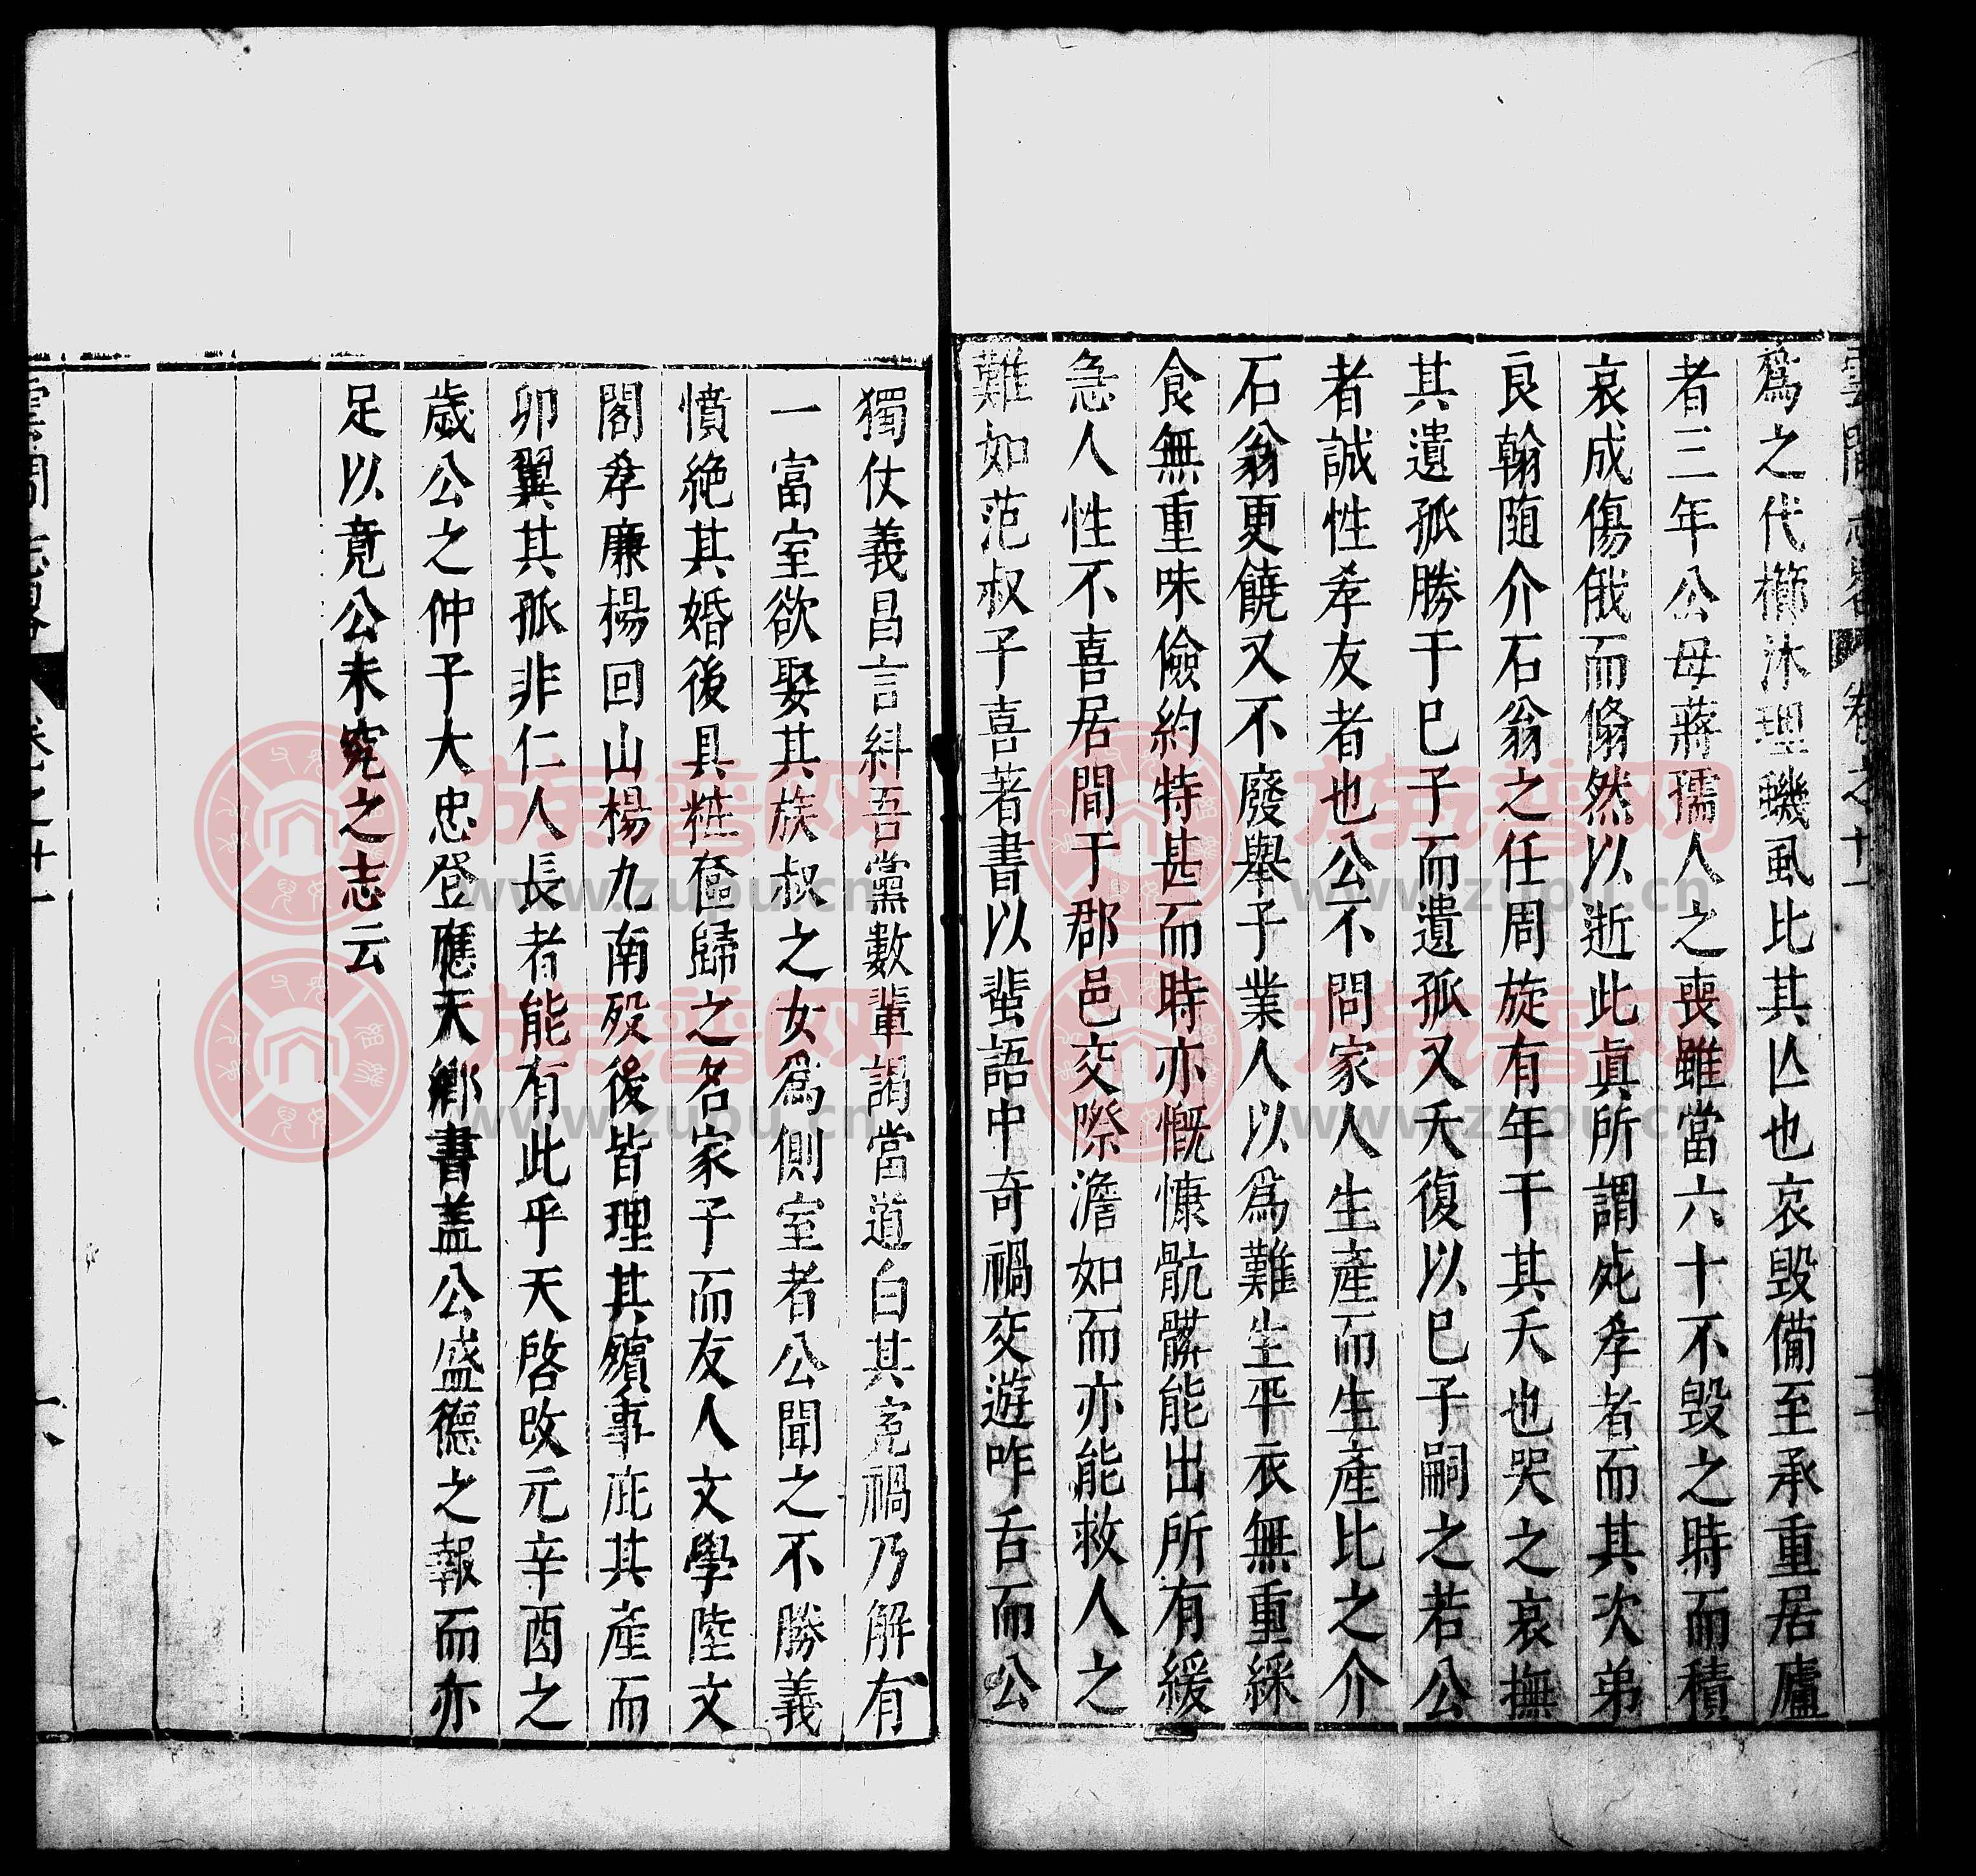 爲之代櫛沐理蟣虱比其亾也哀毁備至承重居廬
者三年公母蔣孺人之喪雖當六十不毁之時而積
哀成傷俄而翛然以逝此眞所謂死孝者而其次弟
良翰随介石翁之任周旋有年干其夭也哭之哀撫
其遺孤勝于巳子而遺孤又夭復以巳子嗣之若公
者誠性孝友者也公不問家人生產而生產比之介
石翁更饒又不廢舉子業人以爲難生平衣無重綵
食無重味儉約特甚而時亦慨慷骯髒能出所有緩
急人性不喜居間于郡邑交際澹如而亦能救人之
難如范叔子喜著書以蜚語中奇禍交遊咋舌而公
獨仗義昌言糾吾黨數輩謁當道白其寃禍乃解有
一富室欲娶其族叔之女爲側室者公聞之不勝義
憤絶其婚後具粧奩歸之名家子而友人文學陸文
閣孝廉楊回山楊九南殁後皆理其殯事庇其產而
卯翼其孤非仁人長者能有此乎天啓改元辛酉之
歲公之仲子大忠登應天鄉書蓋公盛德之報而亦
足以竟公未究之志云
雲間志畧 卷之十一
族譜网
www.zupu.cn
族譜网
www.zupu.cn
族譜网
www.zupu.cn
族譜网
www.zupu.cn